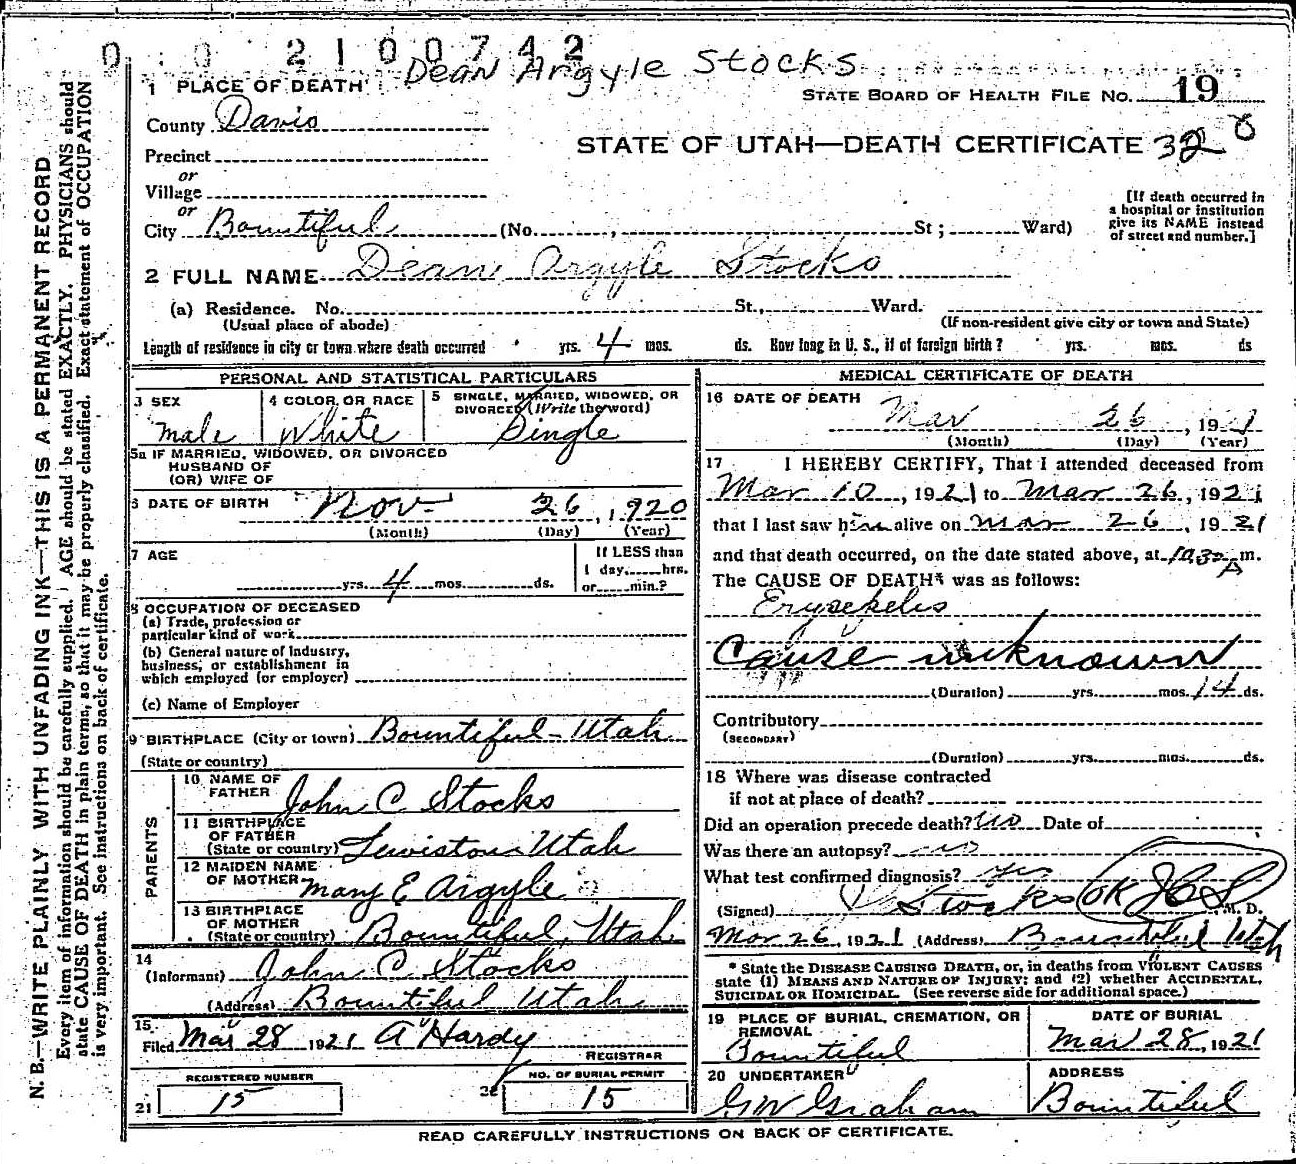 0 0 2100742
Dean Argyle Stocks
1 PLACE OF DEATH
STATE BOARD OF HEALTH FILE NO. 19
County Davis
STATE OF UTAH—DEATH CERTIFICATE 320
Precinct
or
Village
or
City Bountiful (No. , St ; Ward)
[If death occurred in
a hospital or institution
give its NAME instead
of street and number.]
2 FULL NAME Dean Argyle Stocks
(a) Residence. No. St., Ward.
(Usual place of abode) (If non-resident give city or town and State)
Length of residence in city or town where death occurred yrs. 4 mos. ds. How long in U. S., if of foreign birth? yrs. mos. ds
PERSONAL AND STATISTICAL PARTICULARS
3 SEX
male
4 COLOR OR RACE
White
5 SINGLE, MARRIED, WIDOWED, OR
DIVORCED (Write the word)
Single
5a IF MARRIED, WIDOWED, OR DIVORCED
HUSBAND OF
(OR) WIFE OF
6 DATE OF BIRTH Nov 26, 1920
(Month) (Day) (Year)
7 AGE
yrs. 4 mos. ds.
If LESS than
1 day, hrs.
or min.?
8 OCCUPATION OF DECEASED
(a) Trade, profession or
particular kind of work
(b) General nature of Industry,
business, or establishment in
which employed (or employer)
(c) Name of Employer
9 BIRTHPLACE (City or town) Bountiful - Utah
(State or country)
PARENTS
10 NAME OF
FATHER John C Stocks
11 BIRTHPLACE
OF FATHER
(State or country) Lewiston Utah
12 MAIDEN NAME
OF MOTHER Mary E Argyle
13 BIRTHPLACE
OF MOTHER
(State or country) Bountiful, Utah
14
(Informant) John C Stocks
(Address) Bountiful Utah
15
Filed Mar 28 1921 A Hardy
REGISTRAR
REGISTERED NUMBER
21 15
NO. OF BURIAL PERMIT
22 15
MEDICAL CERTIFICATE OF DEATH
16 DATE OF DEATH
Mar 26, 1921
(Month) (Day) (Year)
17 I HEREBY CERTIFY, That I attended deceased from
Mar 10, 1921 to Mar 26, 1921
that I last saw him alive on Mar 26, 1921
and that death occurred, on the date stated above, at 10 30 A m.
The CAUSE OF DEATH* was as follows:
Erysepelis
Cause unknown
(Duration) yrs. mos. 14 ds.
Contributory
(SECONDARY)
(Duration) yrs. mos. ds.
18 Where was disease contracted
if not at place of death?
Did an operation precede death? no Date of
Was there an autopsy? no
What test confirmed diagnosis? yes
(Signed) Stocks OK JCS M. D.
Mar 26, 1921 (Address) Bountiful Utah
* State the DISEASE CAUSING DEATH, or, in deaths from VIOLENT CAUSES
state (1) MEANS AND NATURE OF INJURY; and (2) whether ACCIDENTAL,
SUICIDAL OR HOMICIDAL. (See reverse side for additional space.)
19 PLACE OF BURIAL, CREMATION, OR
REMOVAL
Bountiful
DATE OF BURIAL
Mar 28, 1921
20 UNDERTAKER
GW Graham
ADDRESS
Bountiful
READ CAREFULLY INSTRUCTIONS ON BACK OF CERTIFICATE.
N. B.—WRITE PLAINLY WITH UNFADING INK—THIS IS A PERMANENT RECORD
Every item of information should be carefully supplied. AGE should be stated EXACTLY. PHYSICIANS should
state CAUSE OF DEATH in plain terms, so that it may be properly classified. Exact statement of OCCUPATION
is very important. See instructions on back of certificate.